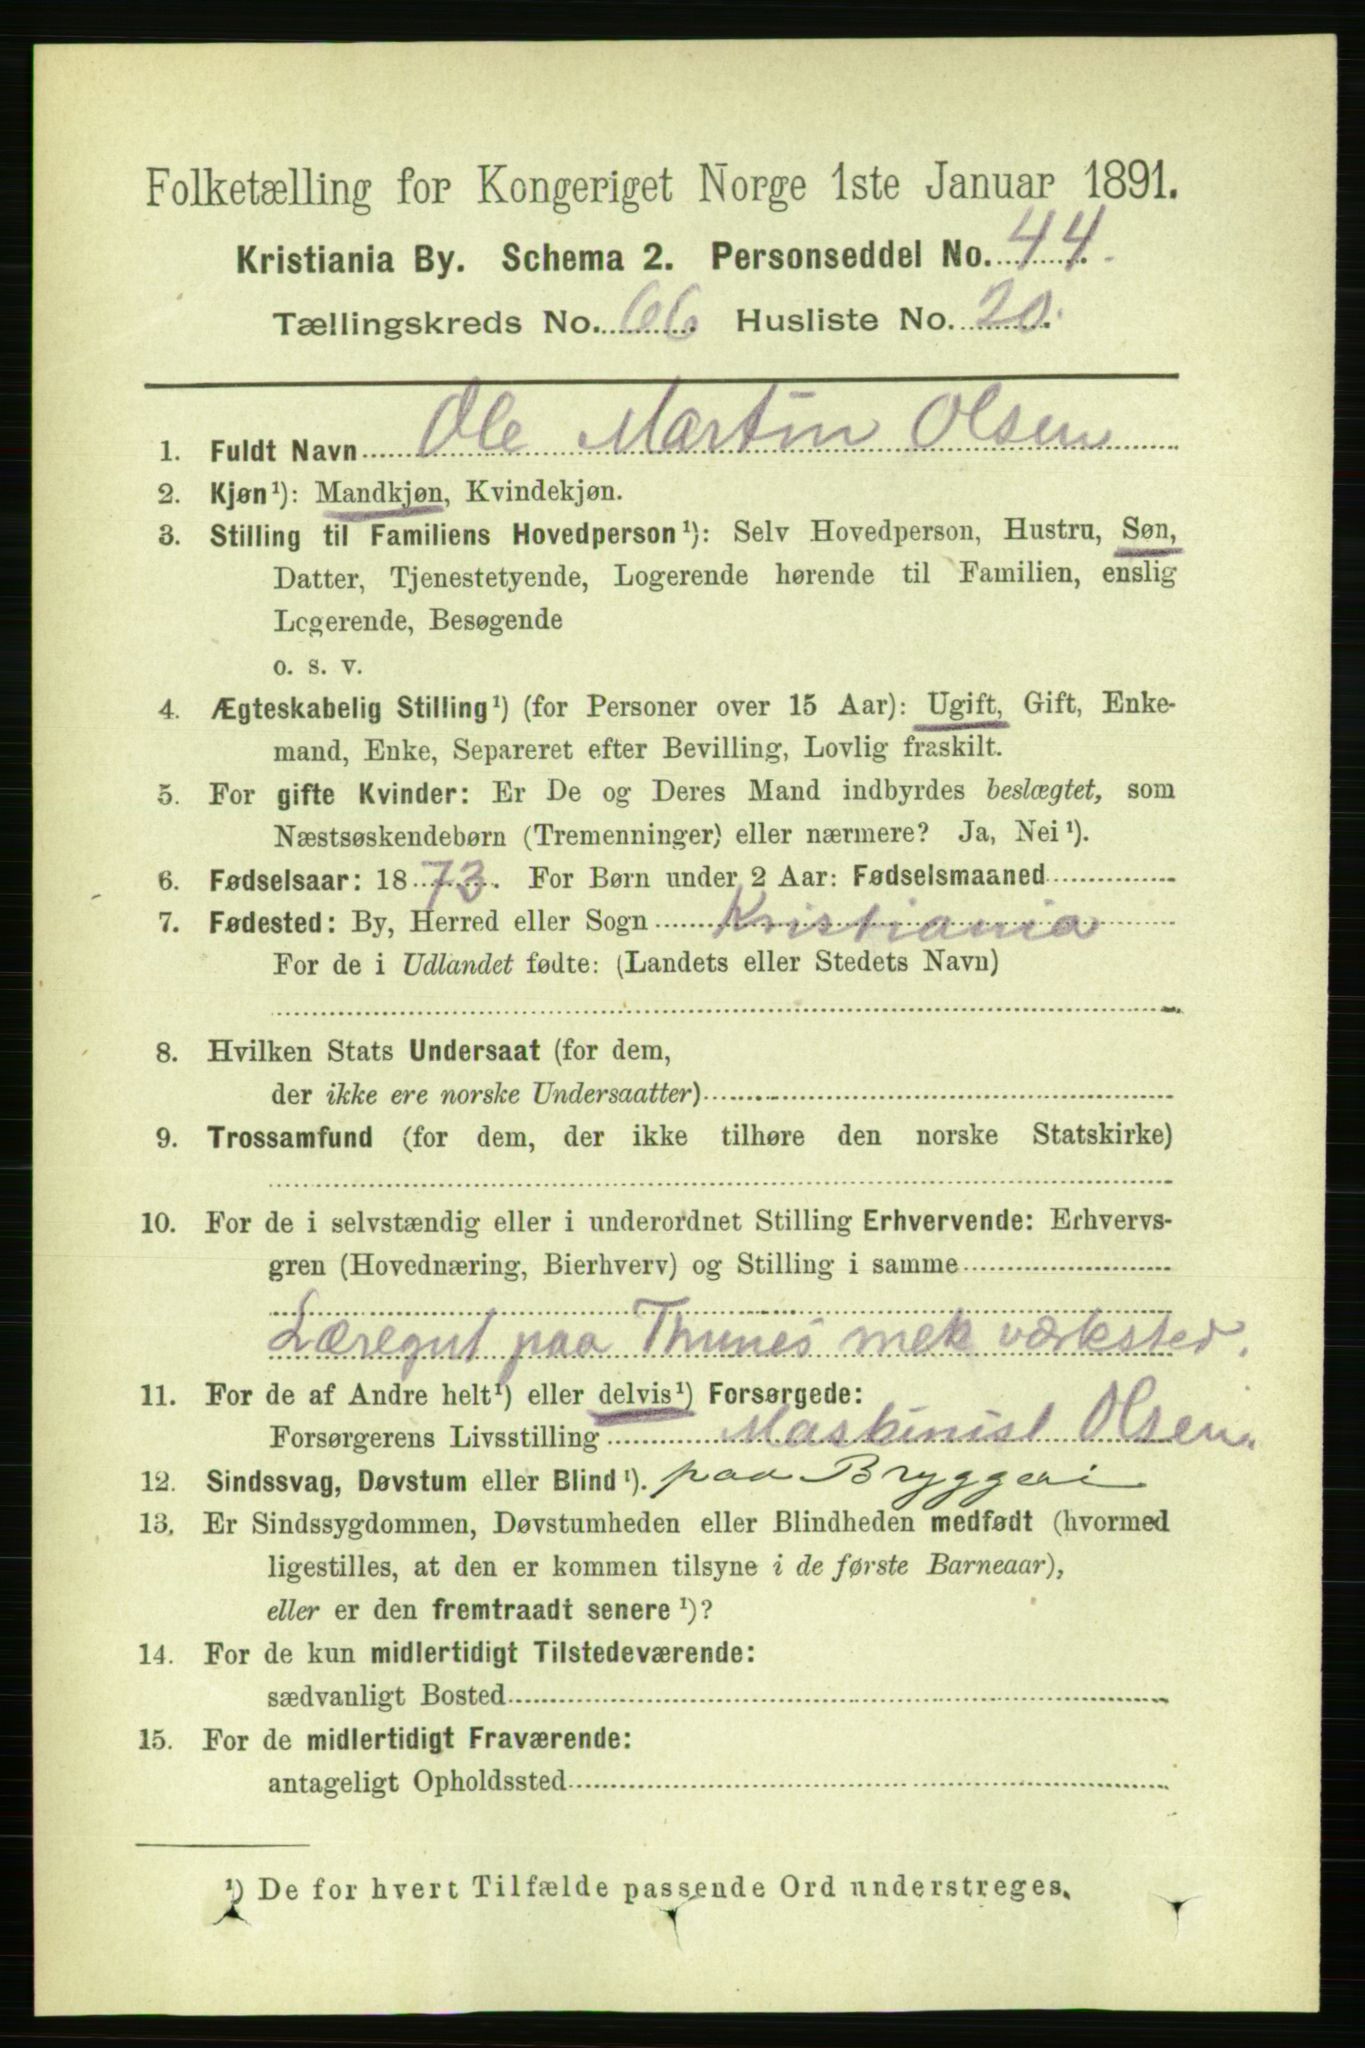 Folketælling for Kongeriget Norge 1ste Januar 1891.
Kristiania By. Schema 2. Personseddel No. 44.
Tællingskreds No. 66. Husliste No. 20.
1. Fuldt Navn Ole Martin Olsen
2. Kjøn¹): Mandkjøn, Kvindekjøn.
3. Stilling til Familiens Hovedperson¹): Selv Hovedperson, Hustru, Søn,
Datter, Tjenestetyende, Logerende hørende til Familien, enslig
Logerende, Besøgende
o. s. v.
4. Ægteskabelig Stilling¹) (for Personer over 15 Aar): Ugift, Gift, Enke-
mand, Enke, Separeret efter Bevilling, Lovlig fraskilt.
5. For gifte Kvinder: Er De og Deres Mand indbyrdes beslægtet, som
Næstsøskendebørn (Tremenninger) eller nærmere? Ja, Nei¹).
6. Fødselsaar: 1873. For Børn under 2 Aar: Fødselsmaaned
7. Fødested: By, Herred eller Sogn Kristiania
For de i Udlandet fødte: (Landets eller Stedets Navn)
8. Hvilken Stats Undersaat (for dem,
der ikke ere norske Undersaatter)
9. Trossamfund (for dem, der ikke tilhøre den norske Statskirke)
10. For de i selvstændig eller i underordnet Stilling Erhvervende: Erhvervs-
gren (Hovednæring, Bierhverv) og Stilling i samme
Læregut paa Thunes mek værksted.
11. For de af Andre helt¹) eller delvis¹) Forsørgede:
Forsørgerens Livsstilling Maskinist Olsen.
12. Sindssvag, Døvstum eller Blind¹). paa Bryggeri
13. Er Sindssygdommen, Døvstumheden eller Blindheden medfødt (hvormed
ligestilles, at den er kommen tilsyne i de første Barneaar),
eller er den fremtraadt senere¹)?
14. For de kun midlertidigt Tilstedeværende:
sædvanligt Bosted
15. For de midlertidigt Fraværende:
antageligt Opholdssted
¹) De for hvert Tilfælde passende Ord understreges.